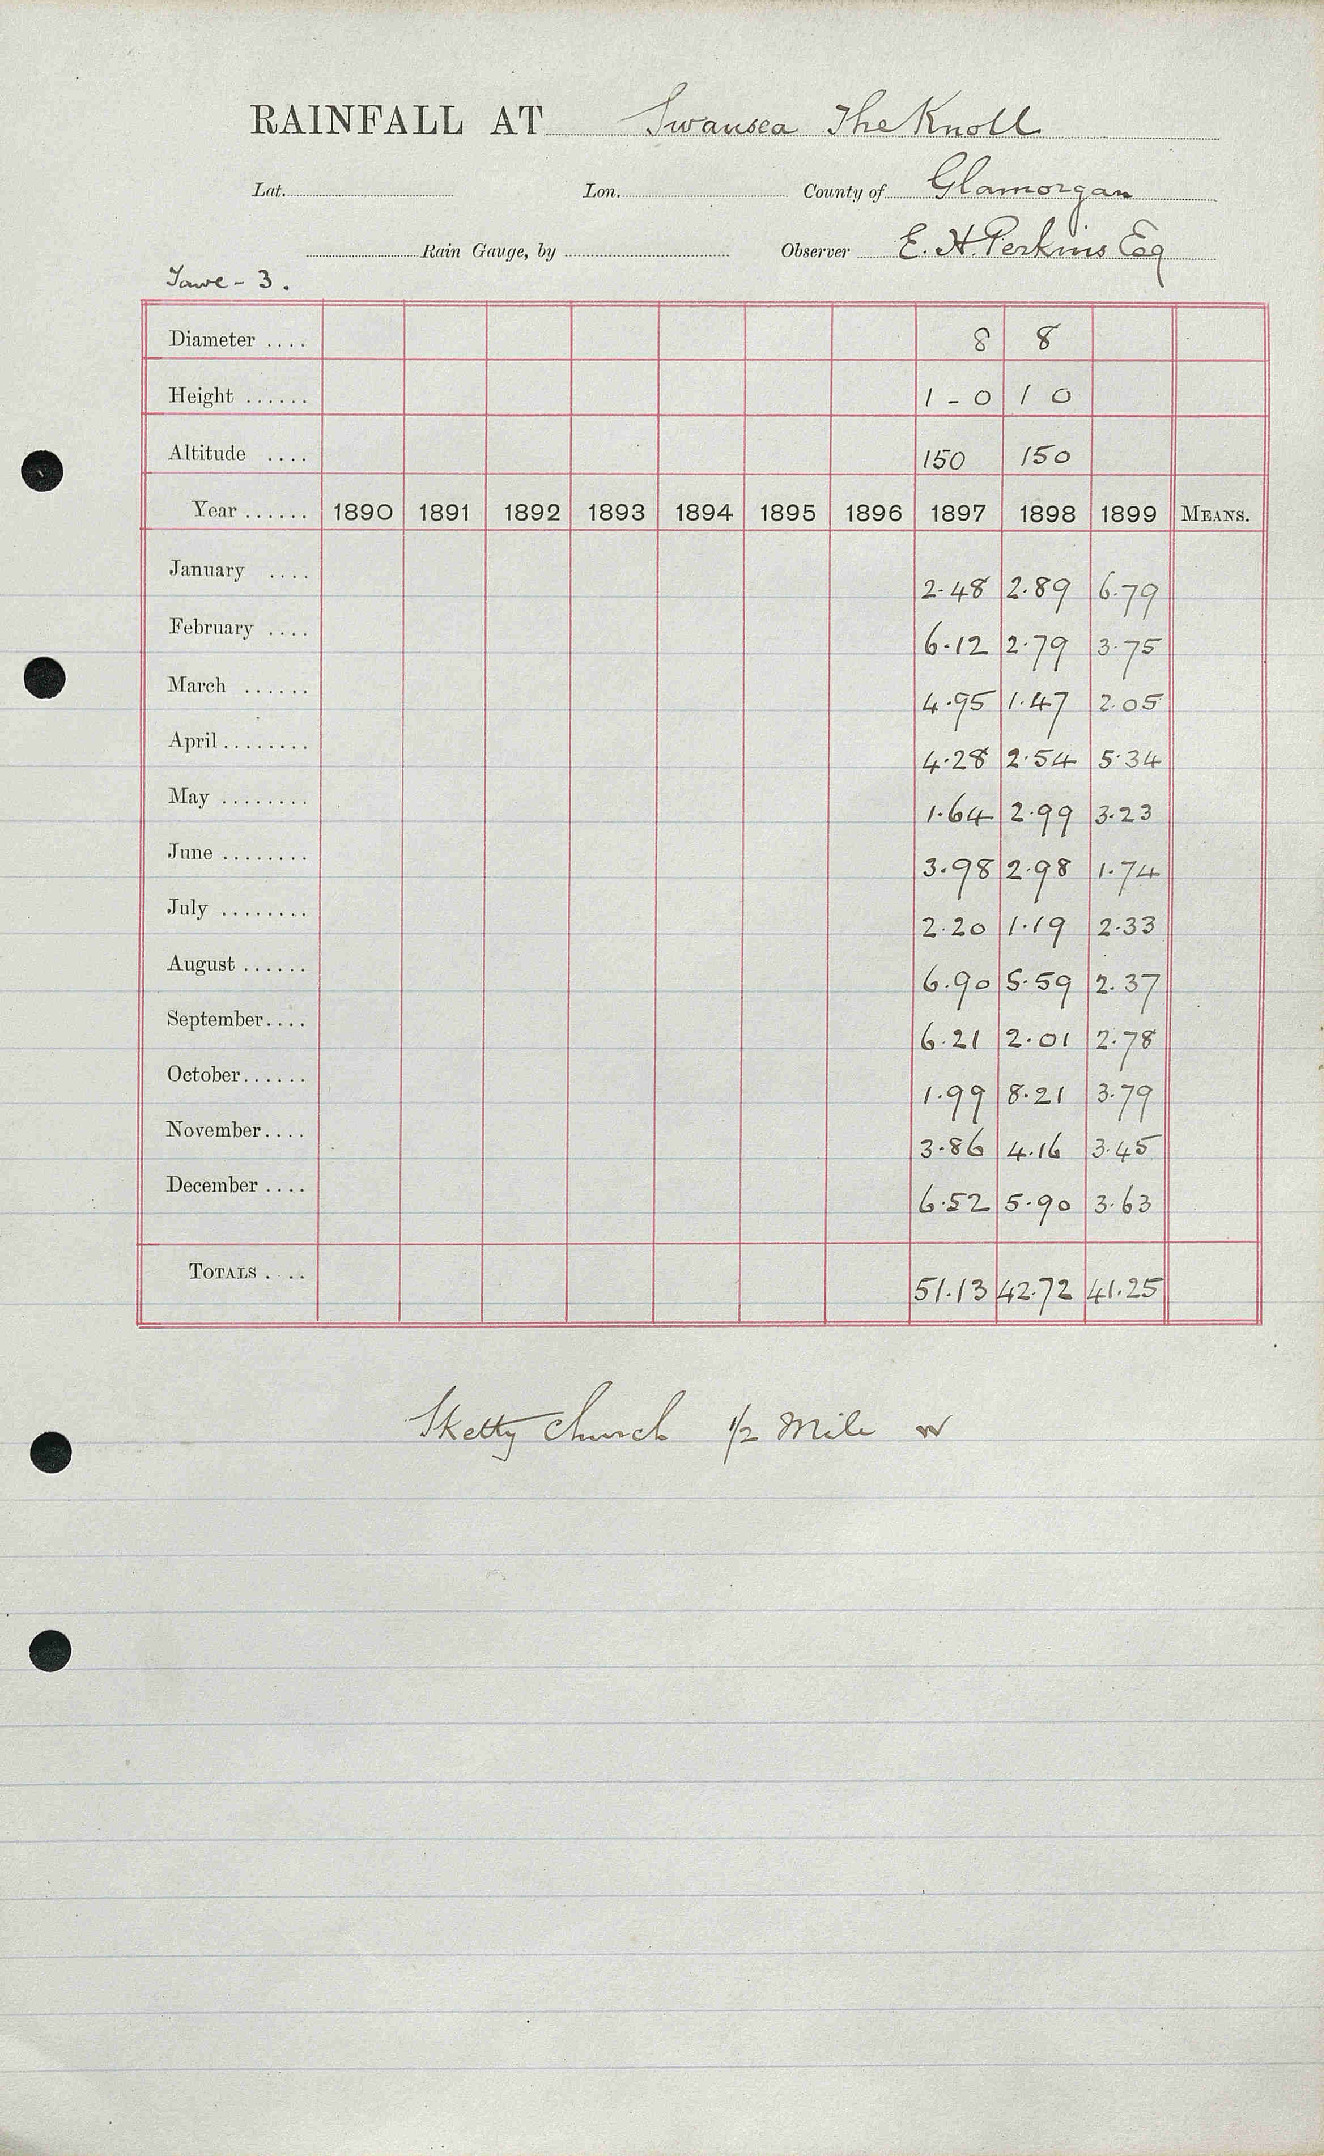 RAINFALL AT Swansea The Knoll
Lat. Lon. County of Glamorgan
Rain Gauge, by Observer E. H. Perkins Esq
Tawe - 3.
Diameter .... 8 8
Height ...... 1 - 0 1 0
Altitude .... 150 150
Year ...... 1890 1891 1892 1893 1894 1895 1896 1897 1898 1899 MEANS.
January .... 2.48 2.89 6.79
February .... 6.12 2.79 3.75
March ...... 4.95 1.47 2.05
April ........ 4.28 2.54 5.34
May ........ 1.64 2.99 3.23
June ........ 3.98 2.98 1.74
July ........ 2.20 1.19 2.33
August ...... 6.90 5.59 2.37
September.... 6.21 2.01 2.78
October...... 1.99 8.21 3.79
November.... 3.86 4.16 3.45
December .... 6.52 5.90 3.63
TOTALS .... 51.13 42.72 41.25
Sketty Church 1/2 Mile W